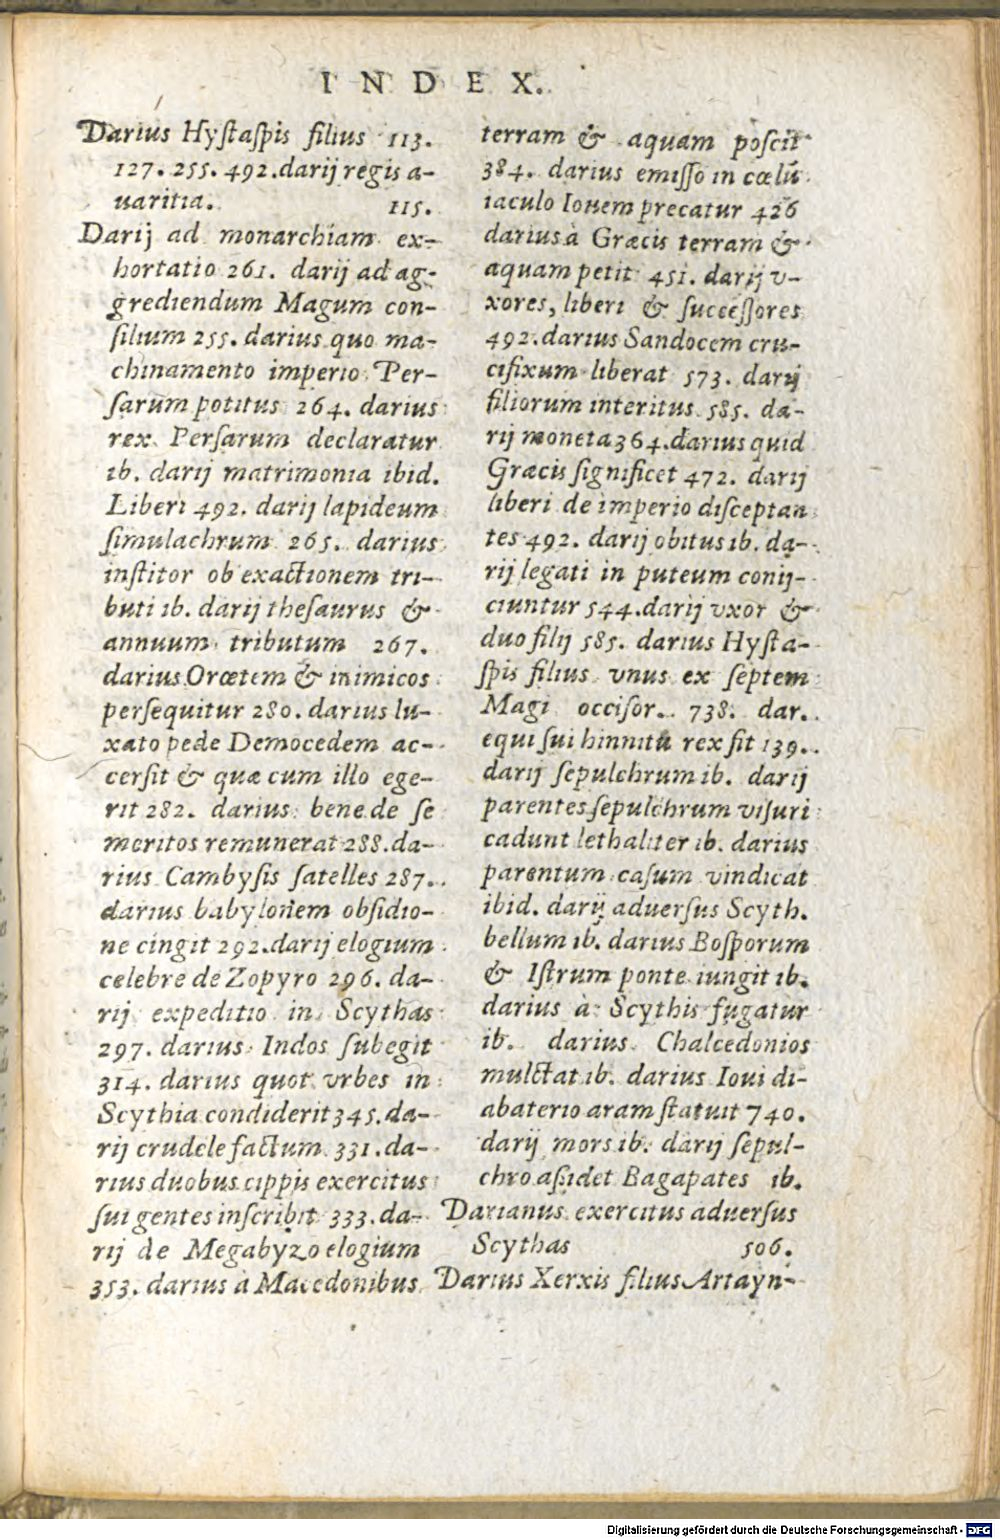 INDEX.
Darius Hyſtaſpis filius 113.
127. 255. 492. darij regis a-
uaritia. 115.
Darij ad monarchiam ex-
hortatio 261. darij ad ag-
grediendum Magum con-
ſilium 255. darius quo ma-
chinamento imperio Per-
ſarum potitus 264. darius
rex Perſarum declaratur
ib. darij matrimonia ibid.
Liberi 492. darij lapideum
ſimulachrum 265. darius
inſtitor ob exactionem tri-
buti ib. darij theſaurus &
annuum tributum 267.
darius Orœtem & inimicos
perſequitur 280. darius lu-
xato pede Democedem ac-
cerſit & quæ cum illo ege-
rit 282. darius bene de ſe
meritos remunerat 288. da-
rius Cambyſis ſatelles 287.
darius babylonem obſidio-
ne cingit 292. darij elogium
celebre de Zopyro 296. da-
rij expeditio in Scythas
297. darius Indos ſubegit
314. darius quot vrbes in
Scythia condiderit 345. da-
rij crudele factum 331. da-
rius duobus cippis exercitus
ſui gentes inſcribit 333. da-
rij de Megabyzo elogium
353. darius à Macedonibus
terram & aquam poſcit
384. darius emiſſo in cœlũ
iaculo Iouem precatur 426
darius à Græcis terram &
aquam petit 451. darij v-
xores, liberi & ſucceſſores
492. darius Sandocem cru-
cifixum liberat 573. darij
filiorum interitus 585. da-
rij moneta 364. darius quid
Græcis ſignificet 472. darij
liberi de imperio diſceptan
tes 492. darij obitus ib. da-
rij legati in puteum conij-
ciuntur 544. darij vxor &
duo filij 585. darius Hyſta-
ſpis filius vnus ex ſeptem
Magi occiſor. 738. dar.
equi ſui hinnitu rex fit 139.
darij ſepulchrum ib. darij
parentes ſepulchrum viſuri
cadunt lethaliter ib. darius
parentum caſum vindicat
ibid. darij aduerſus Scyth.
bellum ib. darius Boſporum
& Iſtrum ponte iungit ib.
darius à Scythis fugatur
ib. darius Chalcedonios
mulctat ib. darius Ioui di-
abaterio aram ſtatuit 740.
darij mors ib. darij ſepul-
chro aſsidet Bagapates ib.
Darianus exercitus aduerſus
Scythas 506.
Darius Xerxis filius Artayn-
Digitalisierung gefördert durch die Deutsche Forschungsgemeinschaft - DFG